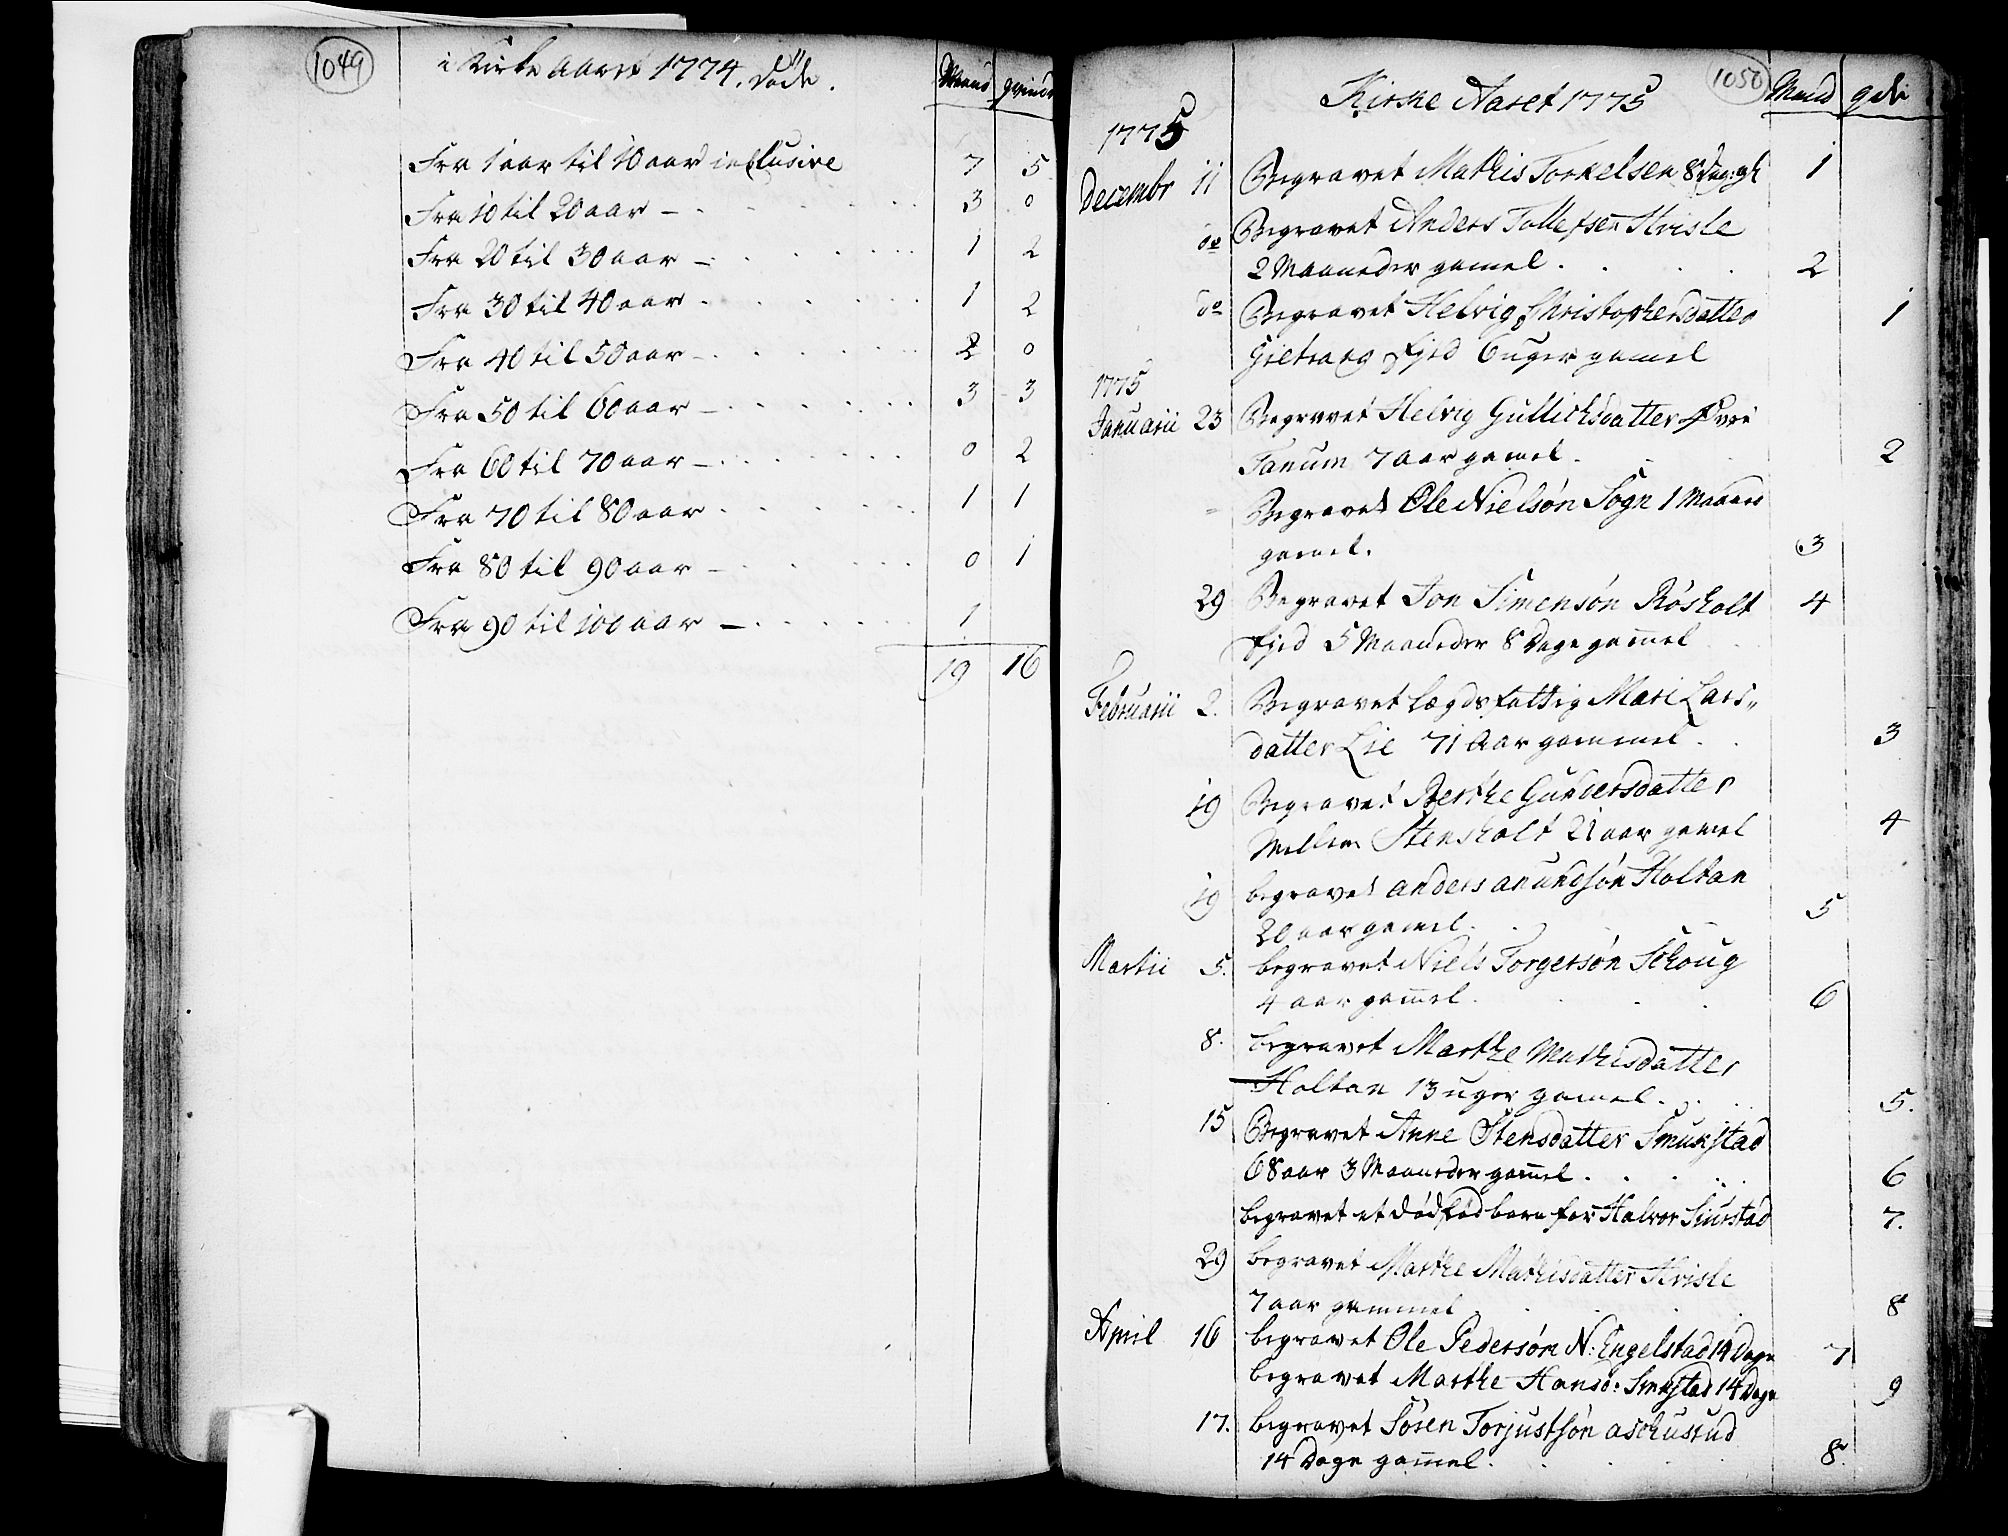 1049
i Kirke aaret 1774, døde.
Mand qvind
Fra 1 aar til 10 aar inclusive 7 5
Fra 10 til 20 aar 3 0
Fra 20 til 30 aar 1 2
Fra 30 til 40 aar 1 2
Fra 40 til 50 aar 2 0
Fra 50 til 60 aar 3 3
Fra 60 til 70 aar 0 2
Fra 70 til 80 aar 1 1
Fra 80 til 90 aar 0 1
Fra 90 til 100 aar 1
19 16
1050
Kirke Aaret 1775
Mand
1775
Decembr 11 Begravet Mathis Torkelsen 8 Dag: gl 1
do Begravet Anders Tollefsen Hvisle
2 Maaneder gamel. 2
do Begravet Helvig Christophersdatter 1
fjed 6 uger gamel
1775
Januarii 23 Begravet Helvig Gullichsdatter Øvre
Fanum 7 aar gamel. 2
Begravet Ole Nielsøn Sogn 1 Maaned
gamel. 3
29 Begravet Jon Simensøn Røsholt 4
fjed 5 Maaneder 8 Dage gam̄el
Februarii 2. Begravet lægdsfattig Mari Lars„
datter Lie 71 Aar gammel. 3
19 Begravet Berthe Gundersdatter
Mellem Stensholt 21 aar gamel 4
19 begravet anders anundsøn Holtan
20 aar gamel. 5
Martii 5. begravet Niels Torgersøn Schoug
4 aar gam̄el. 6
8. begravet Marthe Mathisdatter
Holtan 13 uger gamel. 5.
15 Begravet Anne Stensdatter Smukstad
68 aar 3 Maaneder gam̄el. 6
begravet et dødfød barn for Halvor Siurstad 7.
29 begravet Marthe Mathisdatter Hvisle
7 aar gammel 8
April 16 begravet Ole Pedersøn N: Engelstad 14 Dage 7
begravet Marthe Hansd: Smukstad 14 Dage 9
17. begravet Søren Torjustsøn aschustud
14 Dage gam̄el. 8.